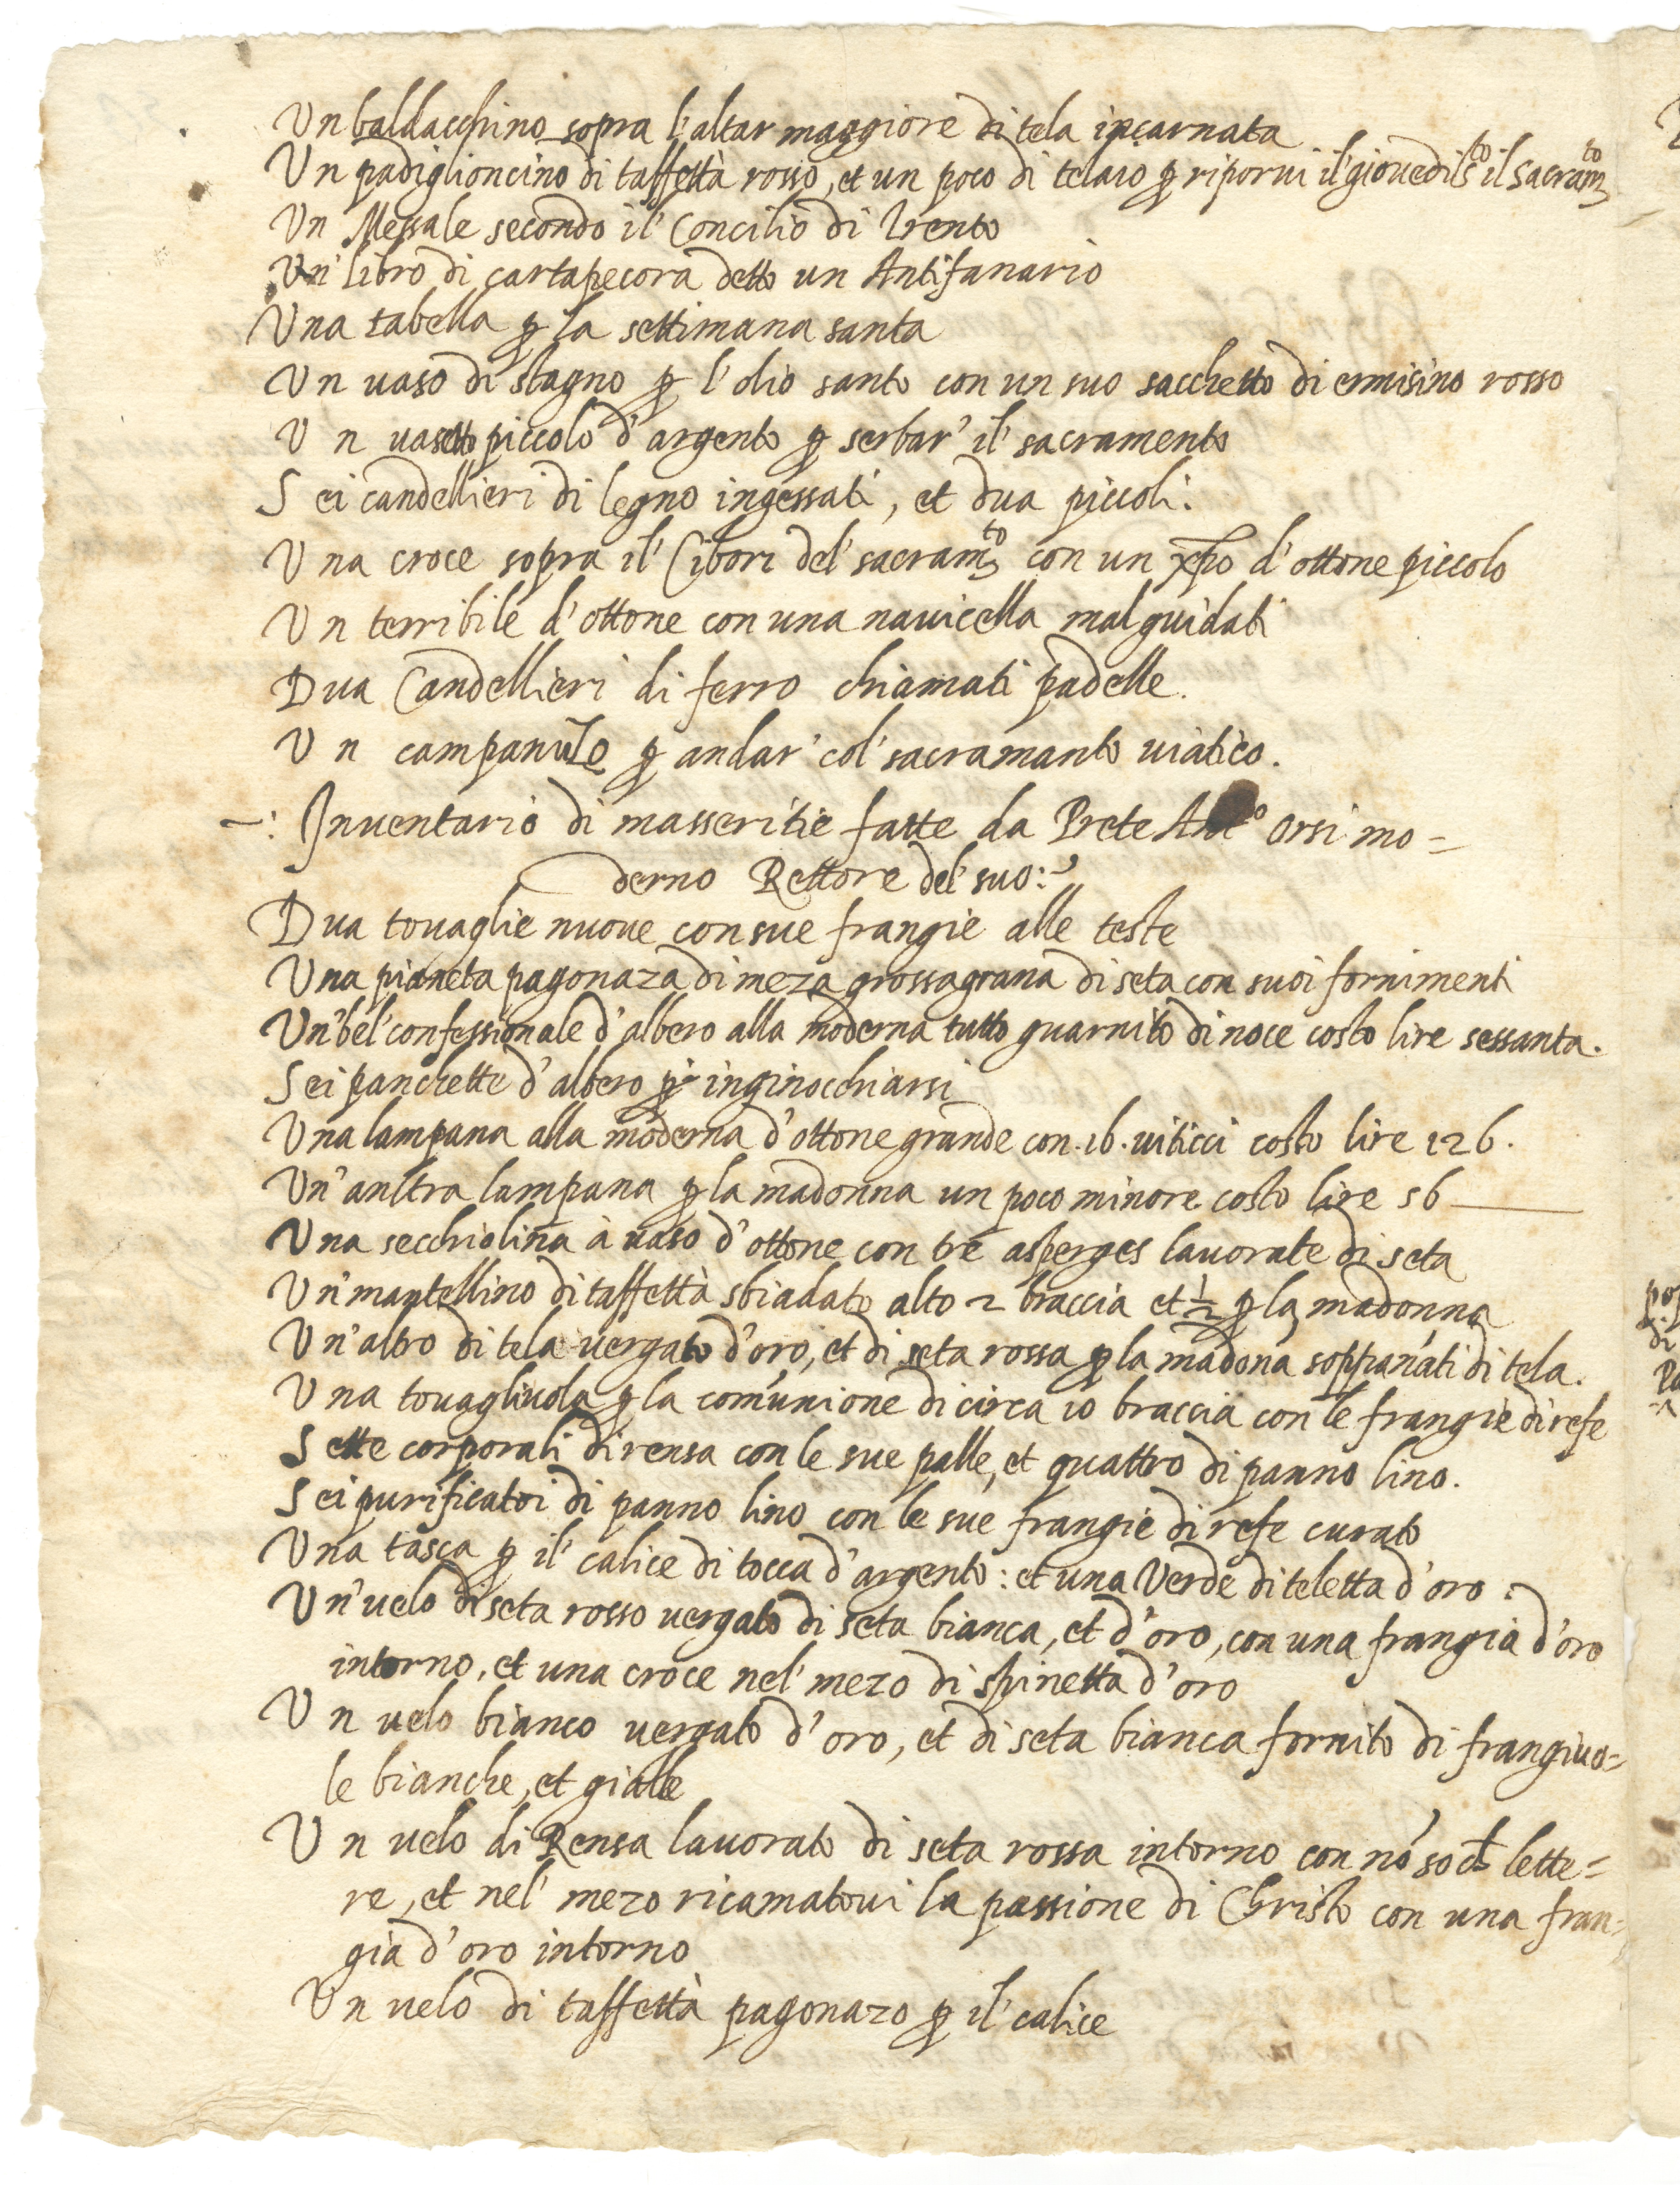 Un baldacchino sopra l'altar maggiore di tela incarnata
Un padiglioncino di taffettà rosso, et un poco di telaio p riporui il giouedi sto il sacramto
Un Messale secondo il Concilio di Trento
Un libro di cartapecora detto un Antifanario
Una tabella p la settimana santa
Un uaso di stagno p l'olio santo con un suo sacchetto di ermisino rosso
Un uasetto piccolo d'argento p serbar' il sacramento
Sei candellieri di legno ingessati, et dua piccoli.
Una croce sopra il Ciborı del sacramto con un xpo d'ottone piccolo
Un terribile d'ottone con una nauicella mal guidati
Dua Candellieri di ferro chiamati padelle.
Un campanulo p andar' col' sacramanto uiatico.
Inuentario di masseritie fatte da Prete Anto Orsi mo=
derno Rettore del' suo:
Dua touaglie nuoue con sue frangie alle teste
Una pianeta pagonaza di meza grossagrana di seta con suoi fornimenti
Un'bel'confessionale d'albero alla moderna tutto guarnito di noce costo lire sessanta.
Sei panchette d'albero p inginocchiarsi
Una lampana alla moderna d'ottone grande con .16. uiticci costo lire 126.
Un'anltra lampana p la madonna un poco minore costo lire 56
Una secchiolina à uaso d'ottone con tre asperges lauorate di seta
Un'mantellino di taffettà sbiadato alto 2 braccia et 1/2 p la madonna
Un'altro di tela uergato d'oro, et di seta rossa p la madona soppanati di tela.
Una touagliuola p la comunione di circa 10 braccia con le frangie di refe
Sette corporali di rensa con le sue palle, et quattro di panno lino.
Sei purificatoi di panno lino con le sue frangie di refe curato
Una tasca p il' calice di tocca d'argento: et una Verde di teletta d'oro:
Un'uelo di seta rosso uergato di seta bianca, et d'oro, con una frangia d'oro
intorno, et una croce nel' mezo di spinetta d'oro
Un uelo bianco uergato d'oro, et di seta bianca fornito di frangiuo=
le bianche, et gialle
Un uelo di Rensa lauorato di seta rossa intorno con nó so ch lette=
re, et nel' mezo ricamatoui la passione di Christo con una fran=
gia d'oro intorno
Un uelo di taffettà pagonazo p il' calice